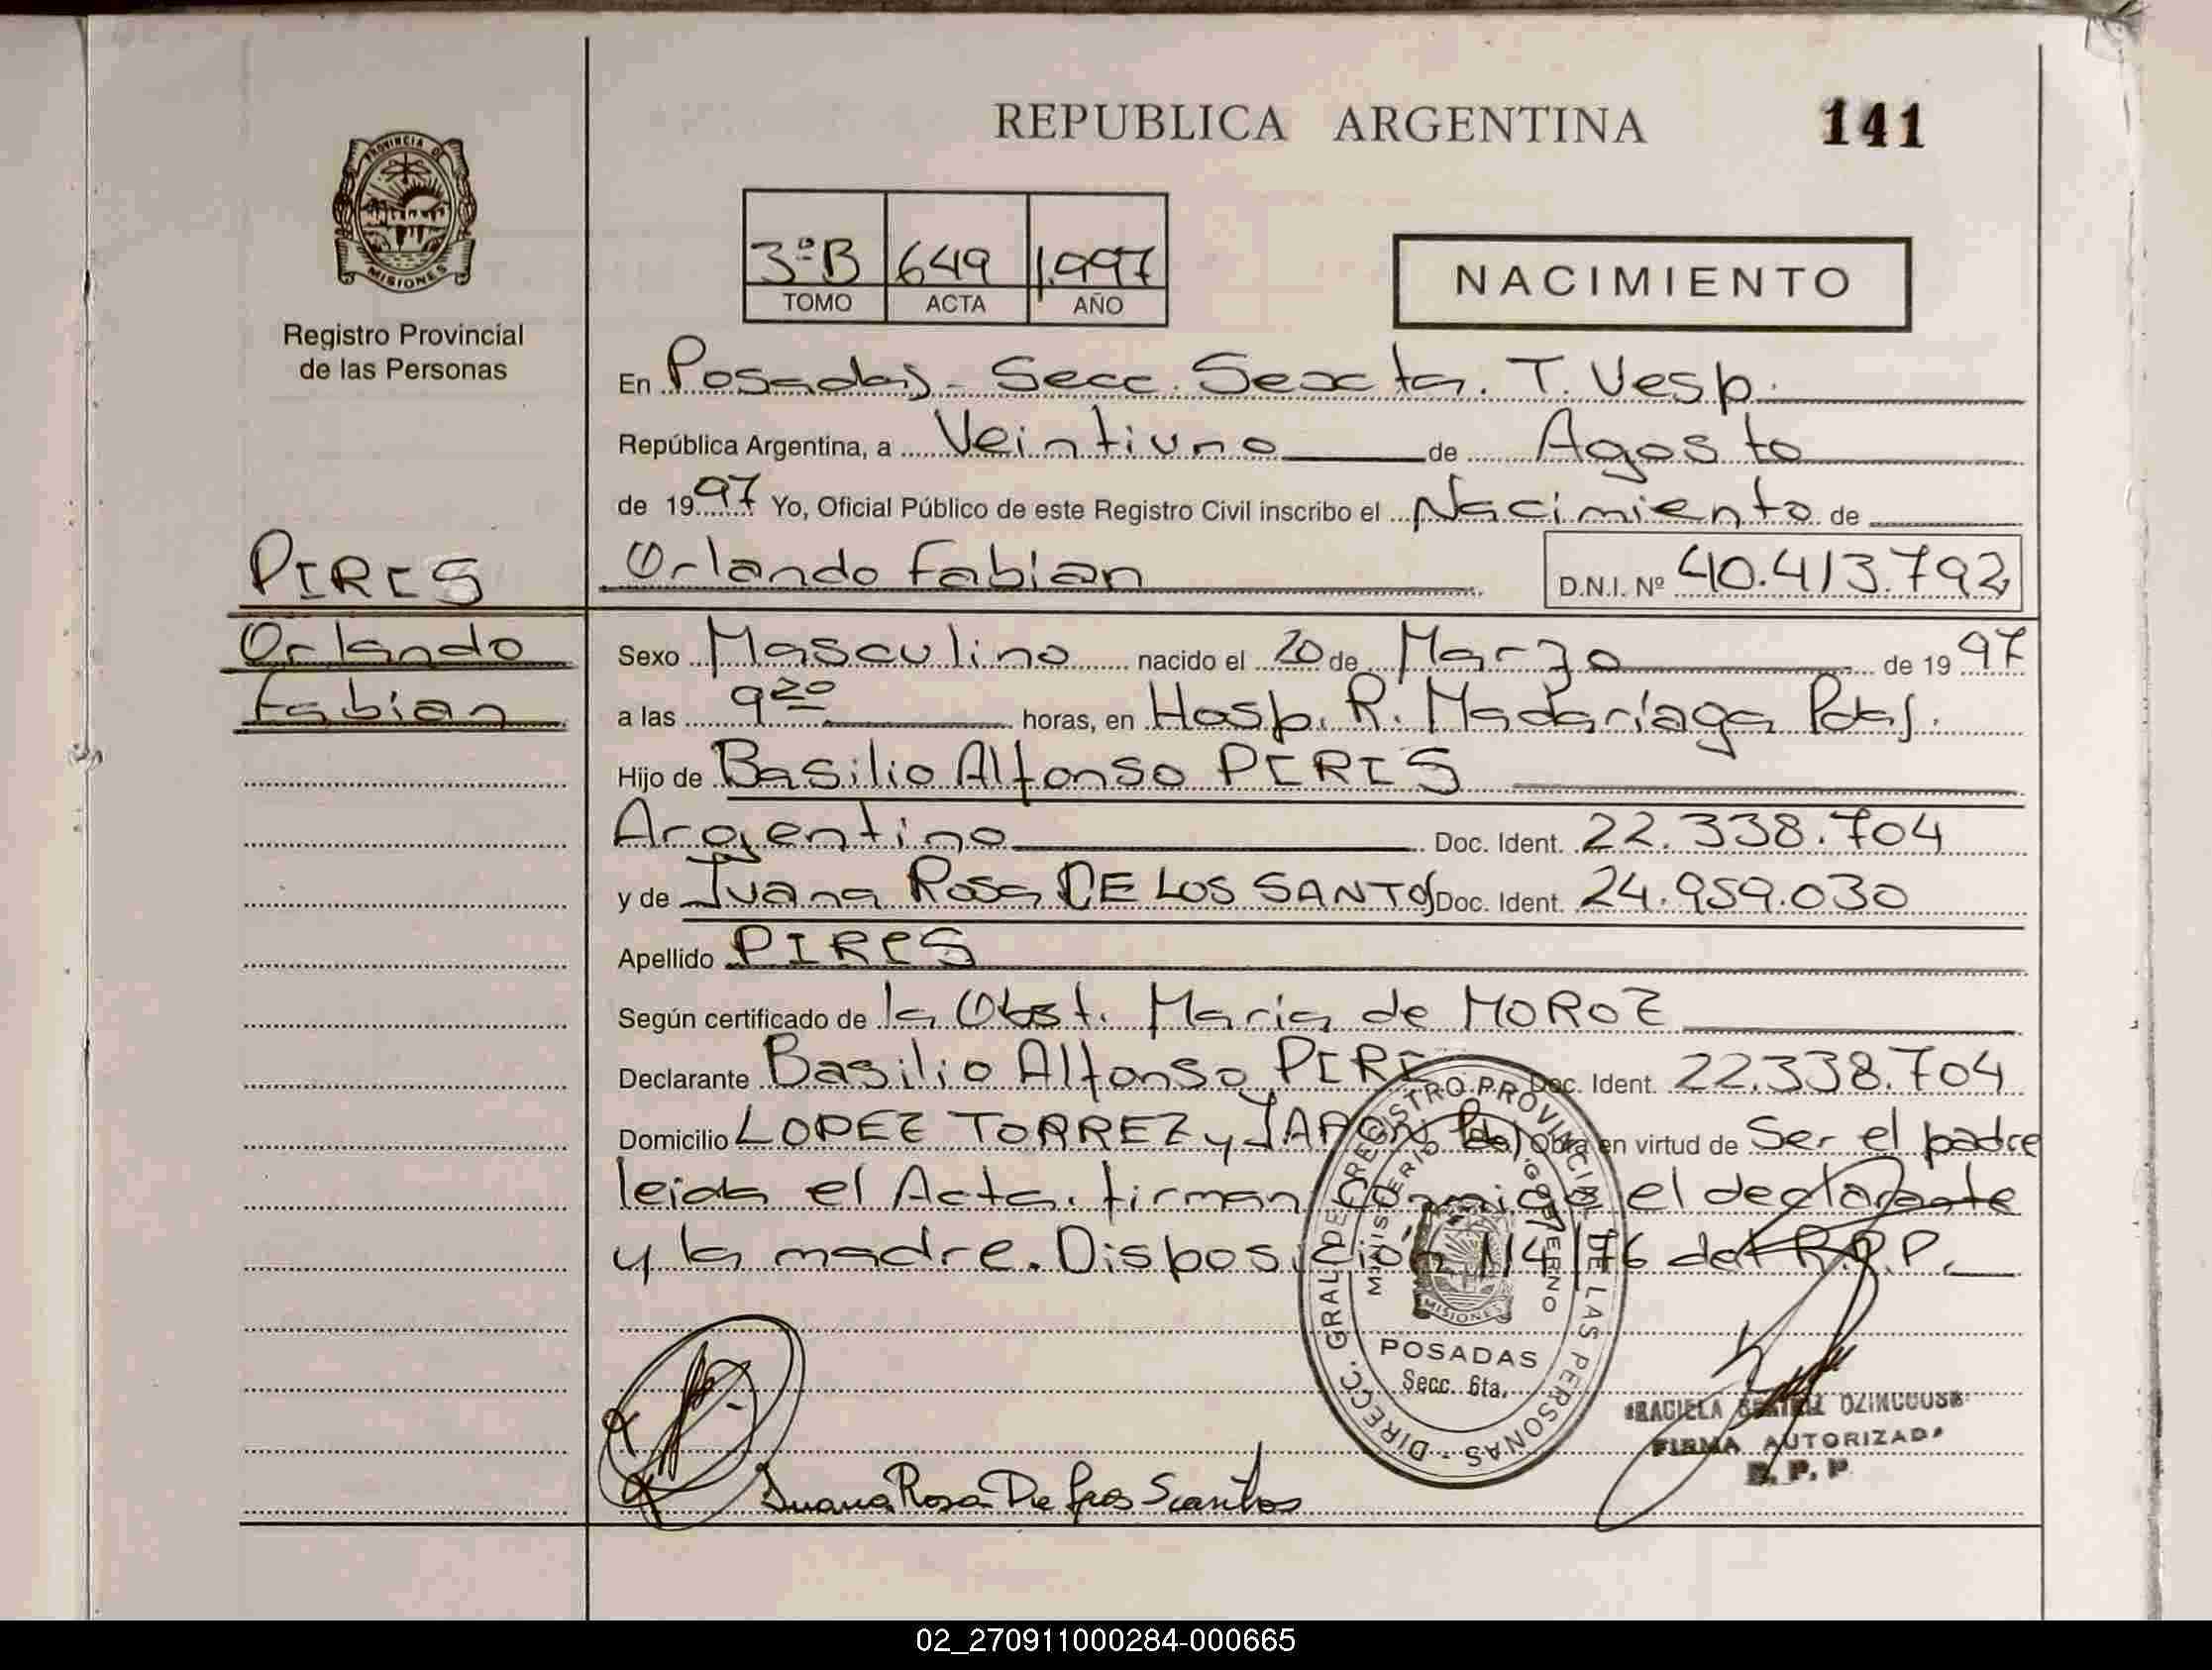 REPUBLICA ARGENTINA 141
PROVINCIA DE
MISIONES
Registro Provincial
de las Personas
3ºB 649 1.997
TOMO ACTA AÑO
NACIMIENTO
En Posadas - Secc. Sexta. T. Vesp.
República Argentina, a Veintiuno de Agosto
de 1997 Yo, Oficial Público de este Registro Civil inscribo el Nacimiento de
PIRES
Orlando
Fabian
Orlando Fabian D.N.I. Nº 40.413.792
Sexo Masculino nacido el 20 de Marzo de 1997
a las 9 20 horas, en Hosp. R. Madariaga Pdas.
Hijo de Basilio Alfonso PIRES
Argentino Doc. Ident. 22.338.704
y de Juana Rosa DE LOS SANTOS Doc. Ident. 24.959.030
Apellido PIRES
Según certificado de la Obst. Maria de MOROZ
Declarante Basilio Alfonso PIRE Doc. Ident. 22.338.704
Domicilio LOPEZ TORREZ y Pdas Obra en virtud de Ser el padre
leida el Acta. firman conmigo el declarante
y la madre. Disposición 114/76 del R.P.P.
DIRECC. GRAL DE REGISTRO PROVINCIAL DE LAS PERSONAS
MINISTERIO GOBIERNO
MISIONES
POSADAS
Secc. 6ta.
Juana Rosa De Los Santos
FIRMA AUTORIZADA
R. P. P.
02_270911000284-000665